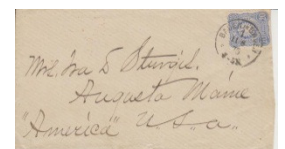 Mrs. Ira D Sturgis.
Augusta Maine
"America" U.S.a.